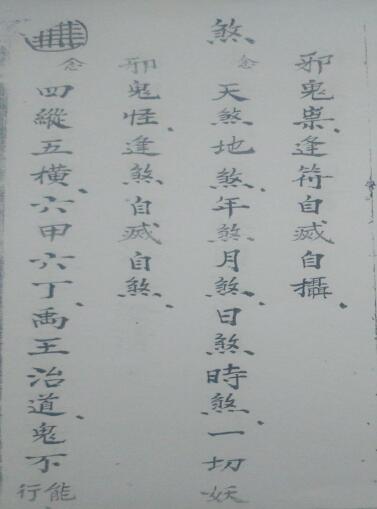 邪鬼祟、逢符自滅自攝、
煞念天煞地煞、年煞月煞、日煞時煞、一切妖
邪鬼怪、逢煞自滅自煞、
念四縱五橫、六甲六丁、禹王治道、鬼不能行